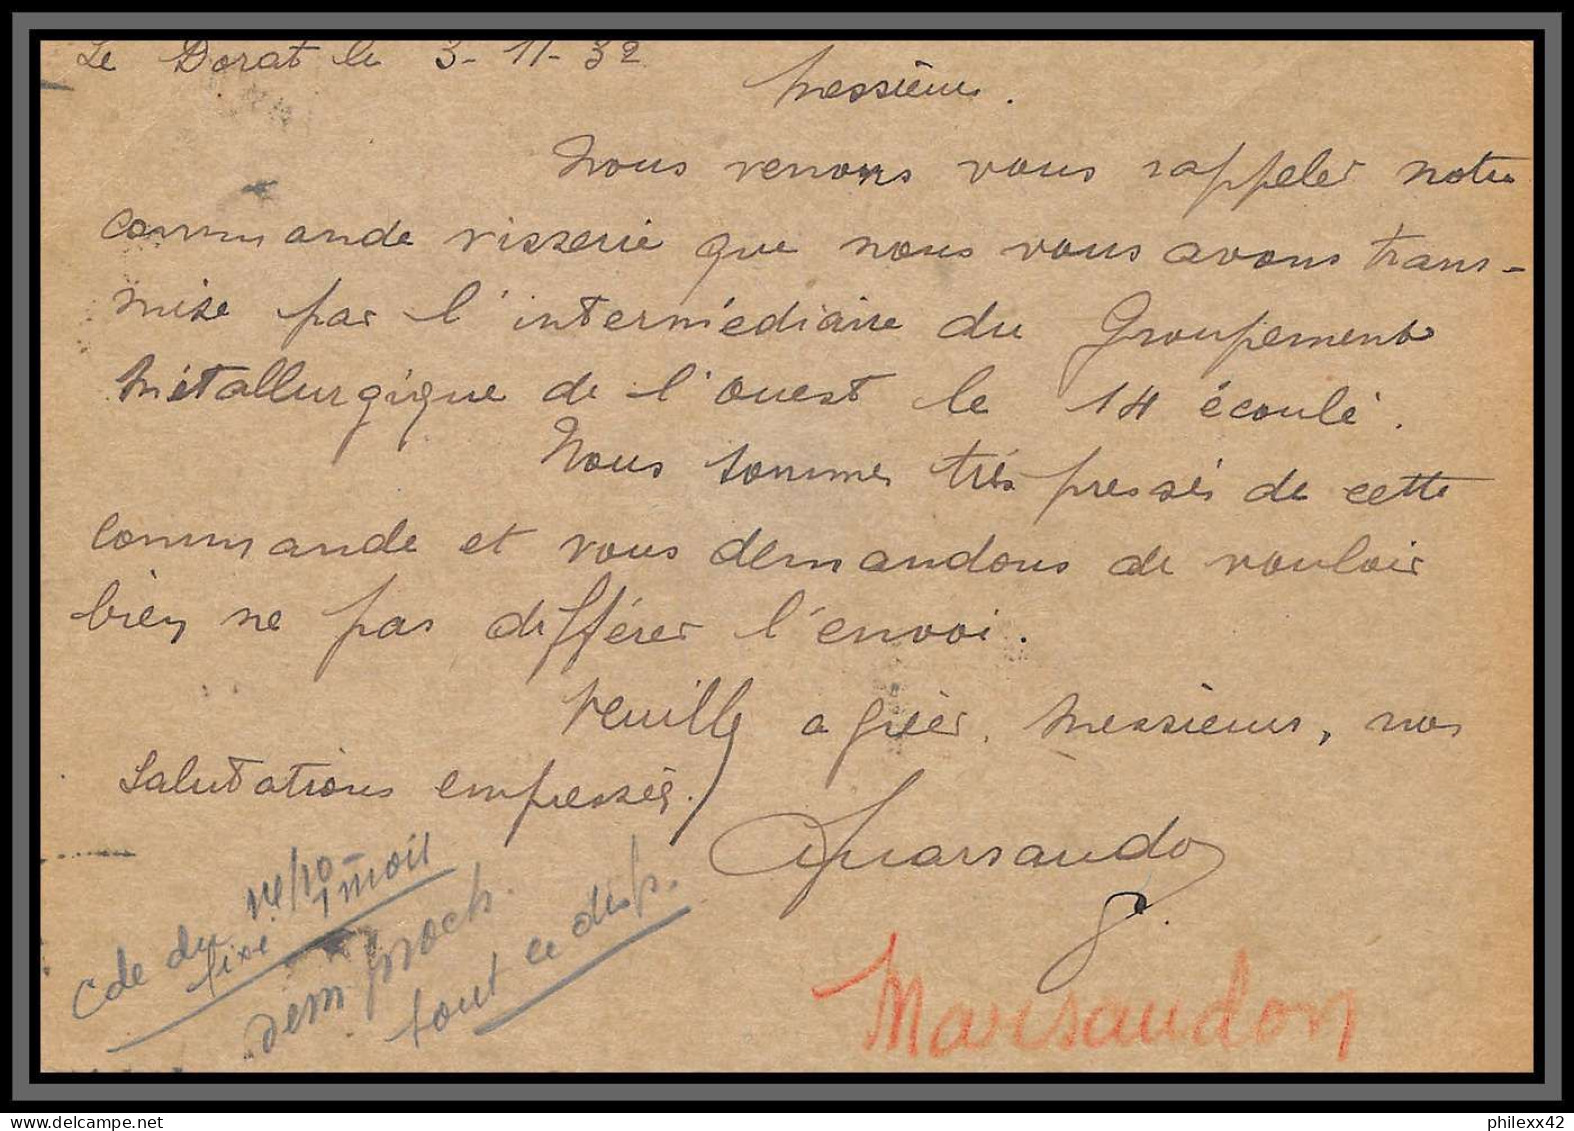 Le Dorat le 3-11-32
Messieurs.
Nous venons vous rappeler notre
commande visserie que nous vous avons trans-
mise par l'intermédiaire du Groupement
Métallurgique de l'Ouest le 14 écoulé.
Nous sommes très pressés de cette
commande et vous demandons de vouloir
bien ne pas différer l'envoi.
Veuillez agréer, Messieurs, nos
salutations empressées.
Marsaudon
Cde du 14/10
fixé 1 mois
dem. proch.
tout ce disp.
Marsaudon
philexx42